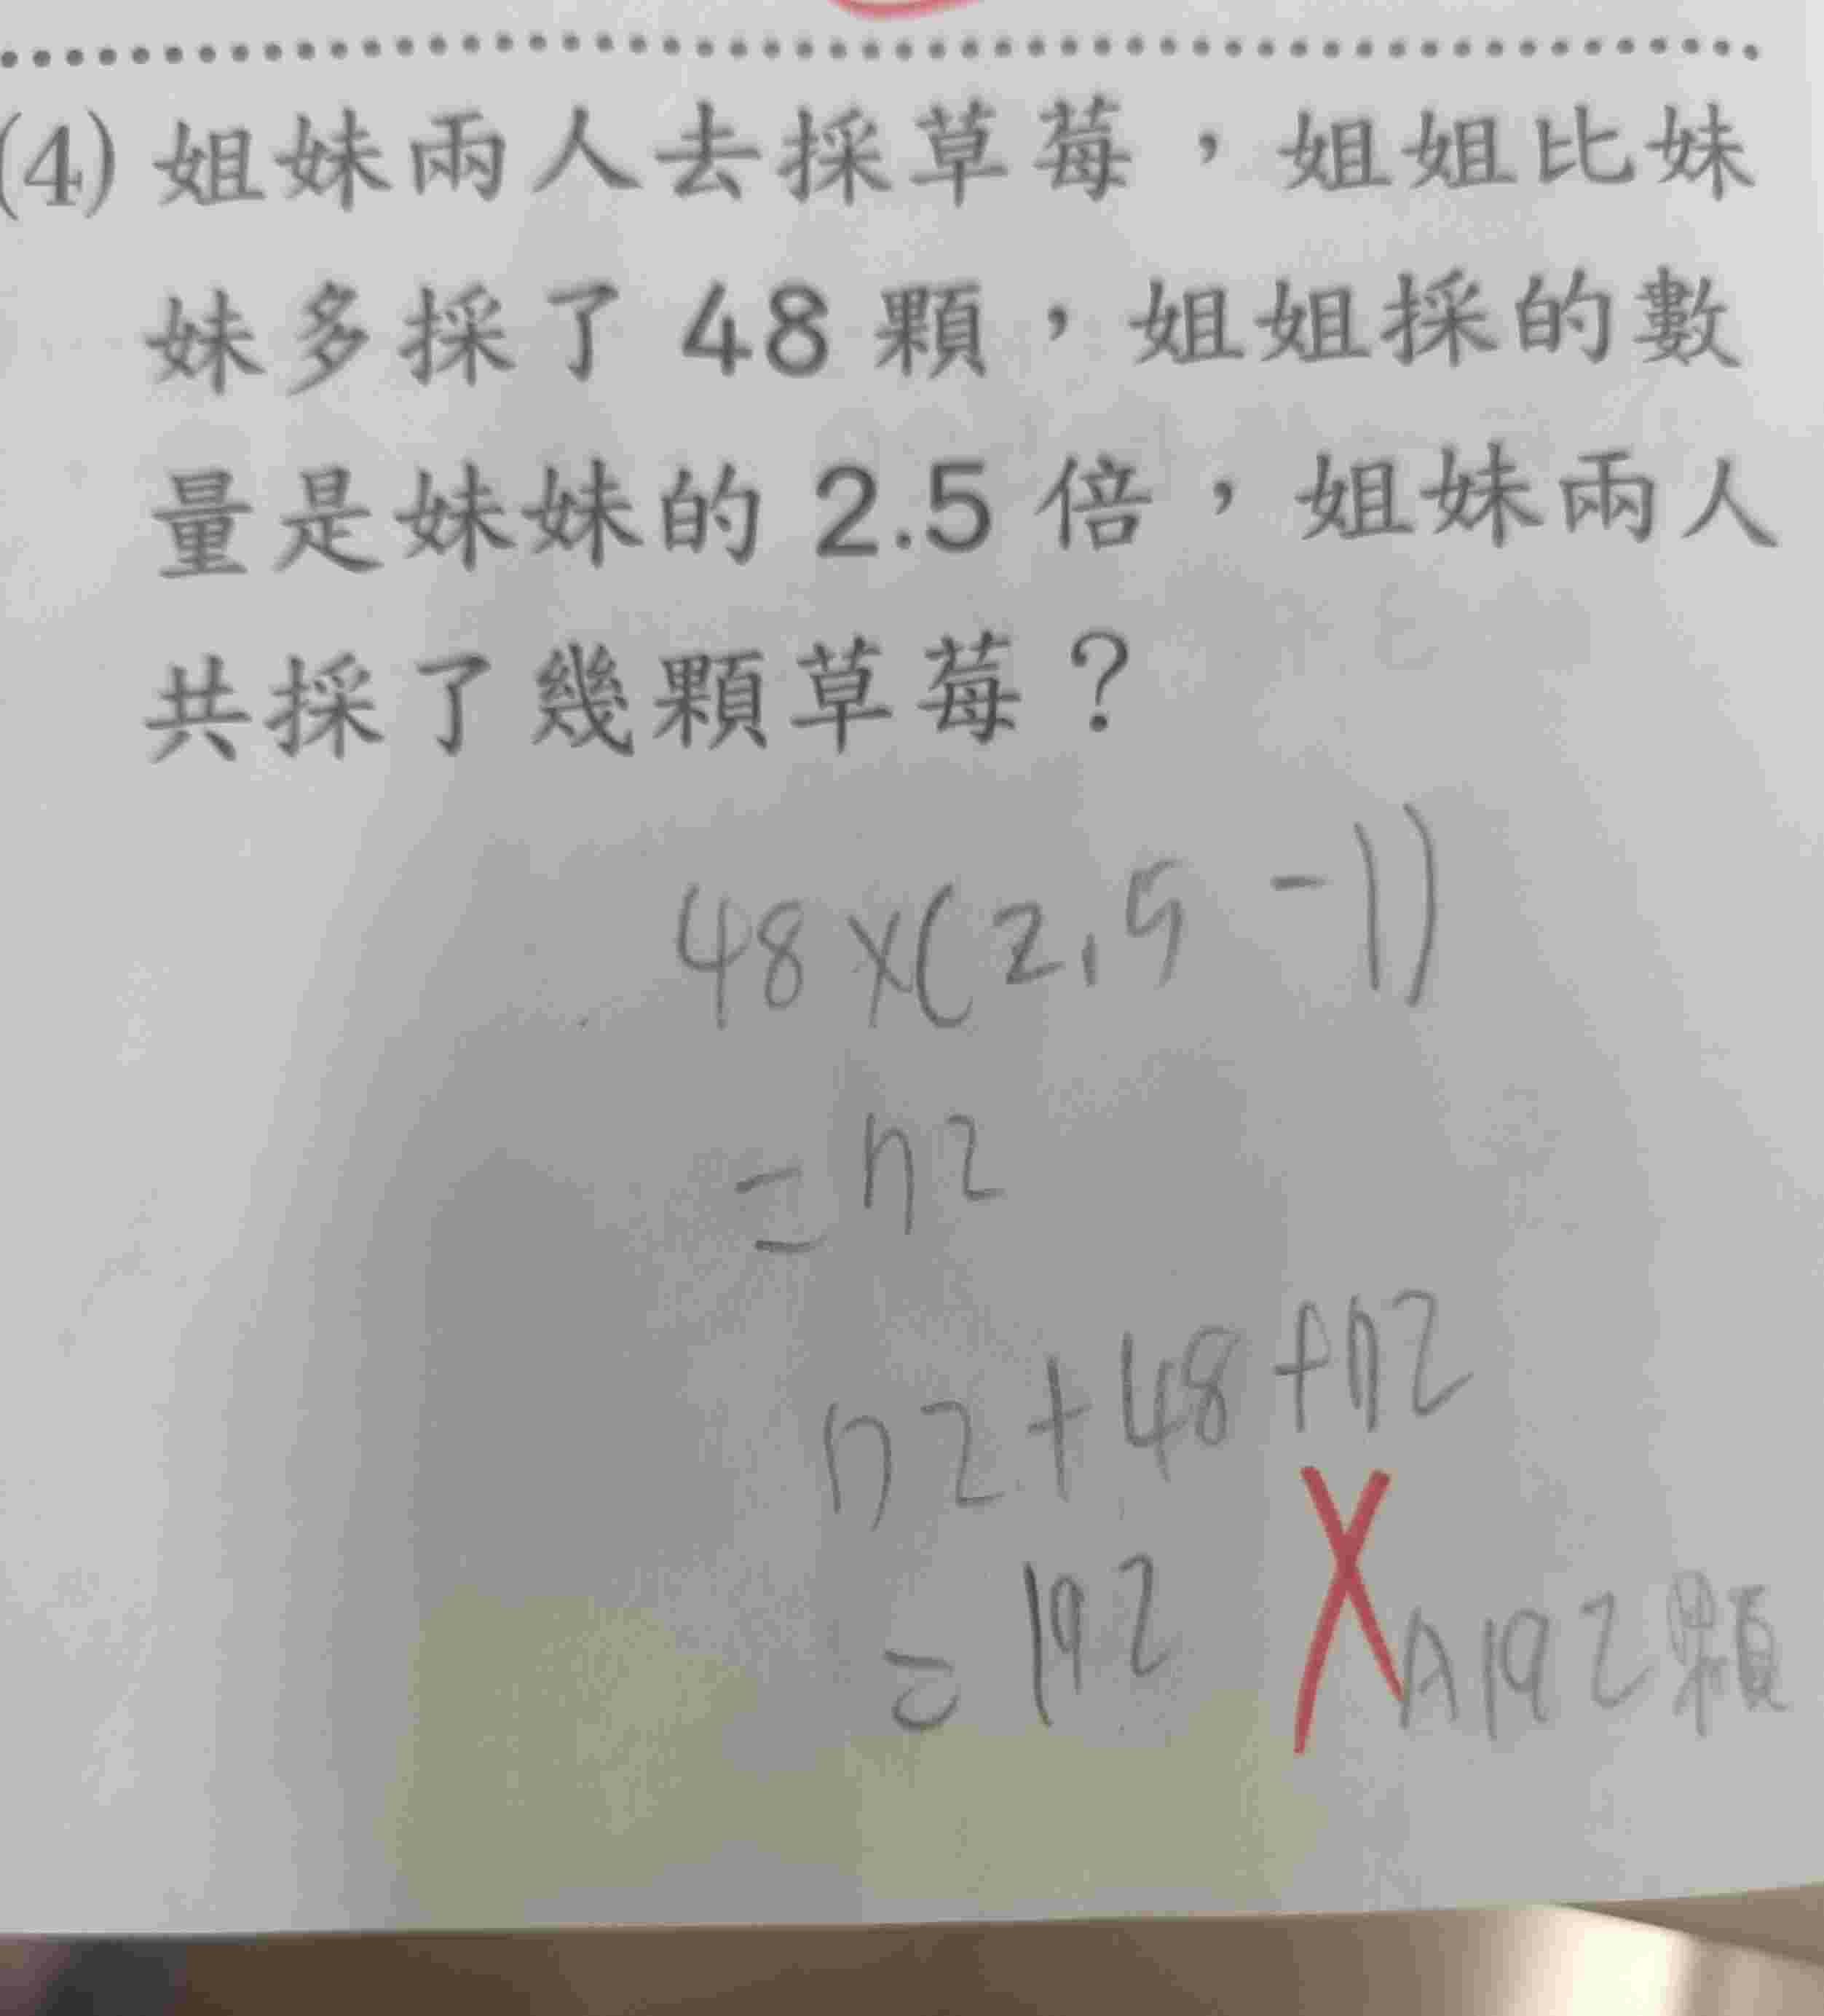 (4) 姐妹兩人去採草莓，姐姐比妹
妹多採了 48 顆，姐姐採的數
量是妹妹的 2.5 倍，姐妹兩人
共採了幾顆草莓？
48×(2.5-1)
=72
72+48+72
=192
A192顆